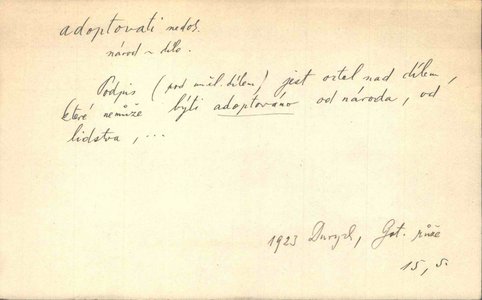 adoptovati nedok.
národ ~ dílo.
Podpis (pod uměl. dílem) jest ortel nad dílem,
které nemůže býti adoptováno od národa, od
lidstva, ...
1923 Durych, Got. růže
15, 5.